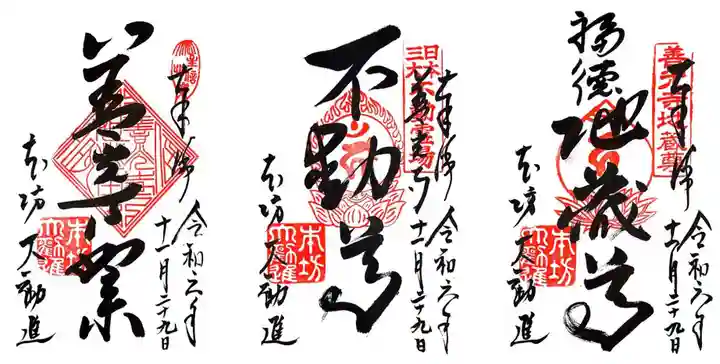 奉拝 令和六年
十一月二十九日
本坊 大勧進
本坊
大勧進
奉拝 令和六年
十一月二十九日
善光寺
不動尊
本坊 大勧進
本坊
大勧進
善光寺地蔵尊
奉拝 令和六年
十一月二十九日
福徳
地蔵尊
本坊 大勧進
本坊
大勧進